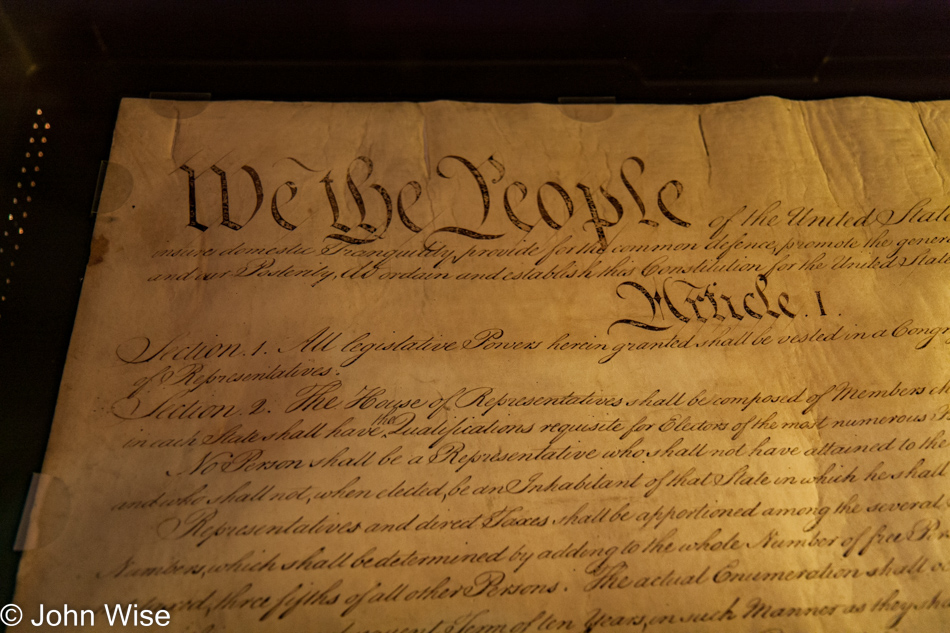 We the People of the United Stat
insure domestic Tranquility, provide for the common defence, promote the gener
and our Posterity, do ordain and establish this Constitution for the United State
Article. I.
Section. 1. All legislative Powers herein granted shall be vested in a Cong
of Representatives.
Section. 2. The House of Representatives shall be composed of Members ch
in each State shall have the Qualifications requisite for Electors of the most numerous
No Person shall be a Representative who shall not have attained to the
and who shall not, when elected, be an Inhabitant of that State in which he shall
Representatives and direct Taxes shall be apportioned among the several
Numbers, which shall be determined by adding to the whole Number of free Per
three fifths of all other Persons. The actual Enumeration shall
Term of ten Years, in such Manner as they sha
© John Wise